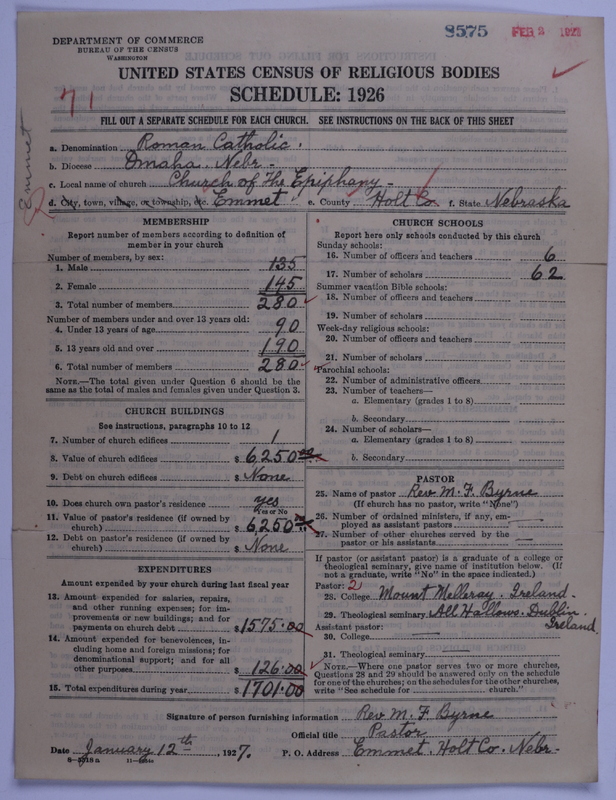 8575 FEB 2
DEPARTMENT OF COMMERCE
BUREAU OF THE CENSUS
WASHINGTON
UNITED STATES CENSUS OF RELIGIOUS BODIES
SCHEDULE: 1926
71
FILL OUT A SEPARATE SCHEDULE FOR EACH CHURCH. SEE INSTRUCTIONS ON THE BACK OF THIS SHEET
Emmet
a. Denomination Roman Catholic.
b. Diocese Omaha. Nebr-
c. Local name of church Church of The Epiphany-
d. City, town, village, or township, etc. Emmet e. County Holt Co. f. State Nebraska
MEMBERSHIP
Report number of members according to definition of
member in your church
Number of members, by sex:
1. Male 135
2. Female 145
3. Total number of members 280
Number of members under and over 13 years old:
4. Under 13 years of age 90
5. 13 years old and over 190
6. Total number of members 280
NOTE.—The total given under Question 6 should be
the same as the total of males and females given under Question 3.
CHURCH BUILDINGS
See instructions, paragraphs 10 to 12
7. Number of church edifices 1
8. Value of church edifices $ 6250
9. Debt on church edifices $ None
10. Does church own pastor's residence yes
Yes or No
11. Value of pastor's residence (if owned by
church) $ 6250
12. Debt on pastor's residence (if owned by
church) $ None
EXPENDITURES
Amount expended by your church during last fiscal year
13. Amount expended for salaries, repairs,
and other running expenses; for im-
provements or new buildings; and for
payments on church debt $ 1575.00
14. Amount expended for benevolences, in-
cluding home and foreign missions; for
denominational support; and for all
other purposes $ 126.00
15. Total expenditures during year $ 1701.00
CHURCH SCHOOLS
Report here only schools conducted by this church
Sunday schools:
16. Number of officers and teachers 6
17. Number of scholars 62
Summer vacation Bible schools:
18. Number of officers and teachers
19. Number of scholars
Week-day religious schools:
20. Number of officers and teachers
21. Number of scholars
Parochial schools:
22. Number of administrative officers
23. Number of teachers—
a. Elementary (grades 1 to 8)
b. Secondary
24. Number of scholars—
a. Elementary (grades 1 to 8)
b. Secondary
PASTOR
25. Name of pastor Rev M. F. Byrne
(If church has no pastor, write "None")
26. Number of ordained ministers, if any, em-
ployed as assistant pastors
27. Number of other churches served by the
pastor or his assistants
If pastor (or assistant pastor) is a graduate of a college or
theological seminary, give name of institution below. (If
not a graduate, write "No" in the space indicated.)
Pastor: 2
28. College Mount Melleray. Ireland-
29. Theological seminary All Hallows. Dublin.
Ireland
Assistant pastor:
30. College
31. Theological seminary
NOTE.—Where one pastor serves two or more churches,
Questions 28 and 29 should be answered only on the schedule
for one of the churches; on the schedules for the other churches,
write "See schedule for church."
Signature of person furnishing information Rev M. F. Byrne
Official title Pastor
Date January 12th, 1927. P. O. Address Emmet. Holt Co. Nebr-